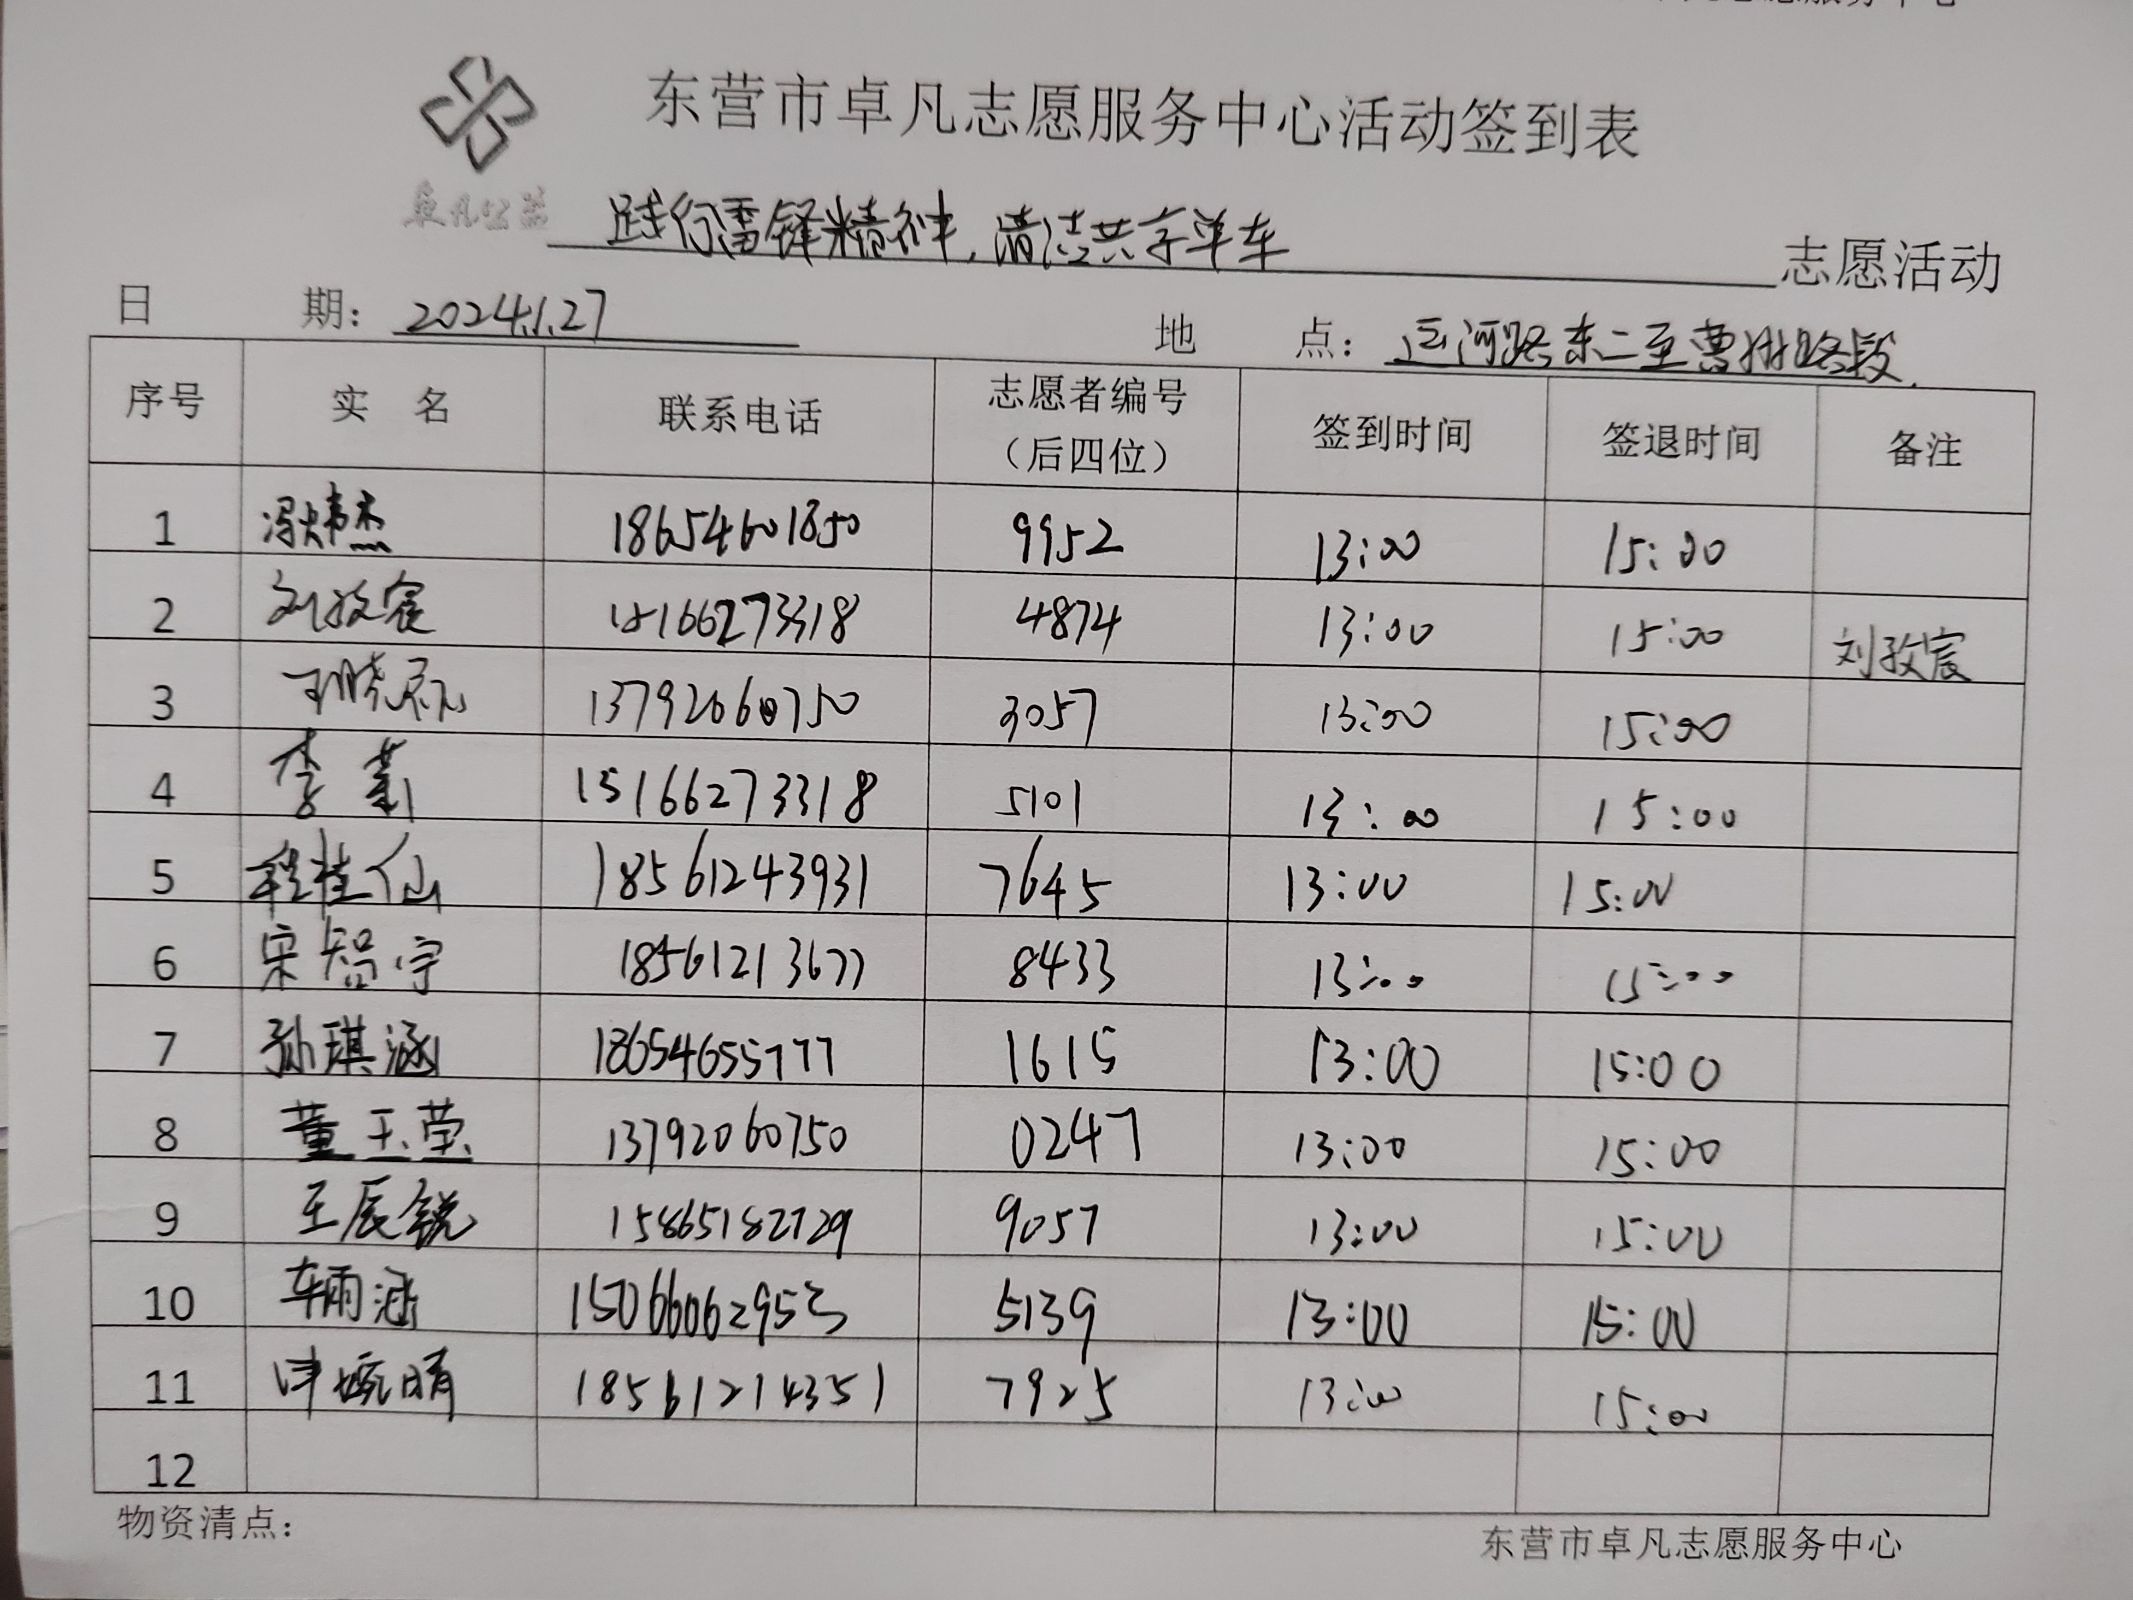 东营市卓凡志愿服务中心活动签到表
卓凡公益
践行雷锋精神,清洁共享单车 志愿活动
日 期: 2024.1.27 地 点: 运河路东二至曹州路段.
序号 实 名 联系电话 志愿者编号（后四位） 签到时间 签退时间 备注
1 冯炜杰 18654601850 9952 13:00 15:00
2 刘孜宸 15166273318 4874 13:00 15:00 刘孜宸
3 13792060750 3057 13:00 15:00
4 李莉 15166273318 5101 13:00 15:00
5 程桂仙 18561243931 7645 13:00 15:00
6 宋智宇 18561213677 8433 13:00 15:00
7 孙琪涵 18654655777 1615 13:00 15:00
8 董玉莹 13792060750 0247 13:00 15:00
9 王辰锐 15865182729 9057 13:00 15:00
10 车雨涵 15066062953 5139 13:00 15:00
11 婉晴 18561214351 7925 13:00 15:00
12
物资清点:
东营市卓凡志愿服务中心